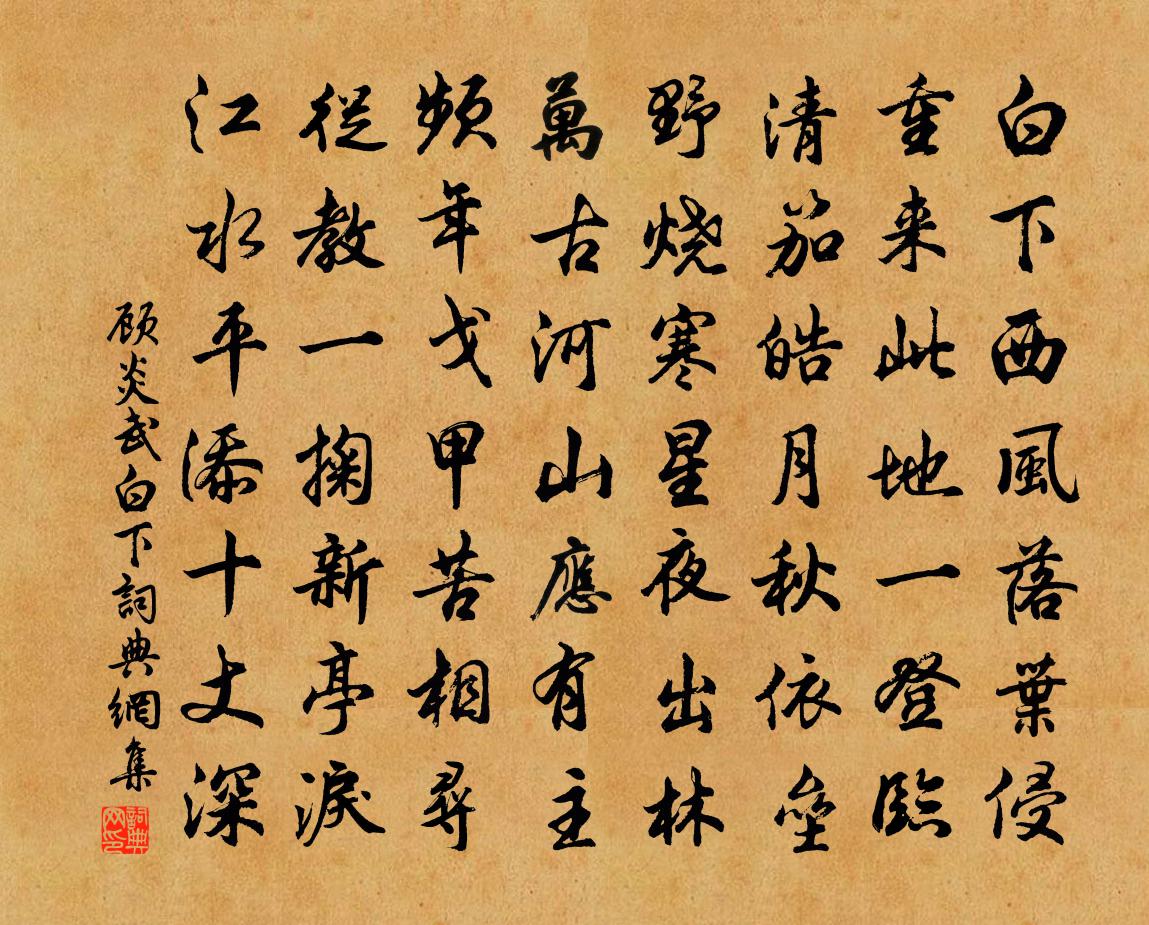 白下西風落葉侵
重来此地一登臨
清笳皓月秋依壘
野燒寒星夜出林
萬古河山應有主
頻年戈甲苦相尋
從教一掬新亭淚
江水平添十丈深
顾炎武白下詞典網集
詞典网印